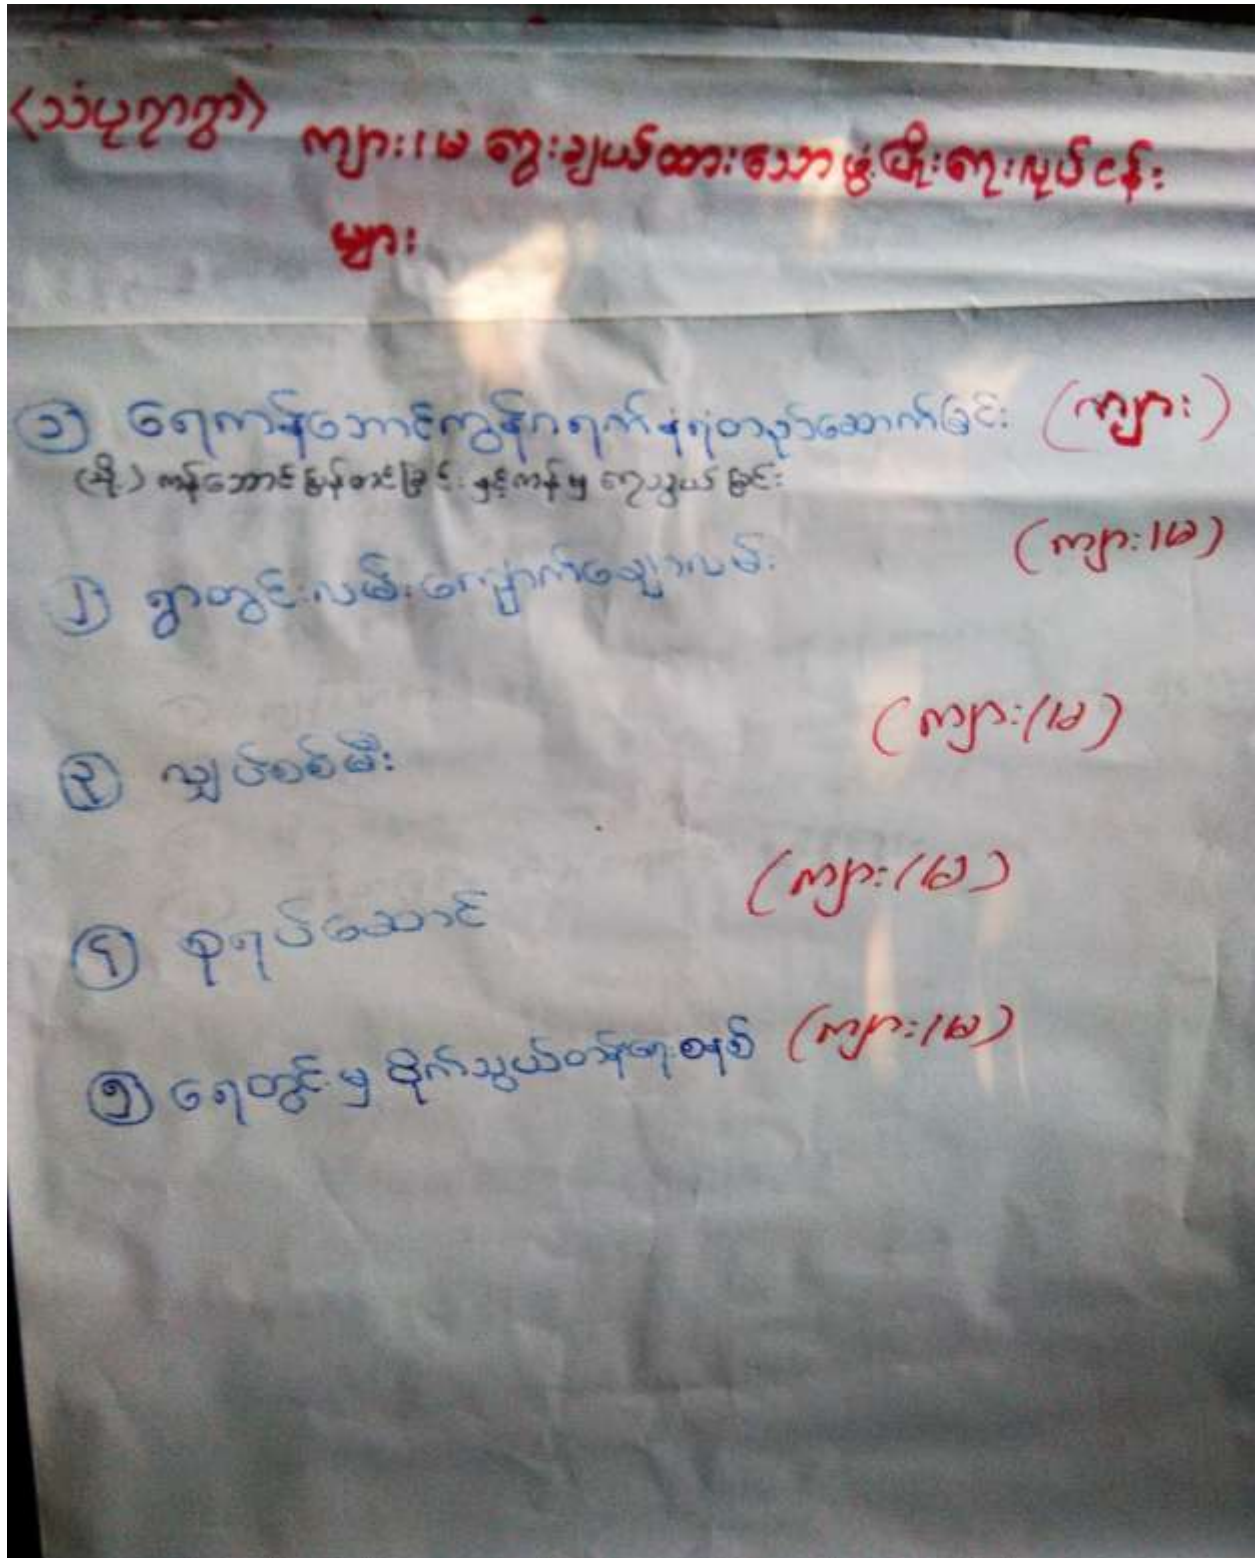 <သံပုရာရွာ>
ကျား/မ ရွေးချယ်ထားသော ဖွံ့ဖြိုးရေးလုပ်ငန်း
များ
၁ ရေကန်ဘောင်ကွန်ကရစ်နံရံတည်ဆောက်ခြင်း (ကျား)
(သို့) ကန်ဘောင်ပြန်တင်ခြင်းနှင့်ကန်မှ ရေသွယ်ခြင်း
၂ ရွာတွင်းလမ်းကျောက်ချောလမ်း (ကျား/မ)
၃ လျှပ်စစ်မီး (ကျား/မ)
၄ စုရပ်ဆောင် (ကျား/မ)
၅ ရေတွင်းမှ ပိုက်သွယ်တန်းရေးစနစ် (ကျား/မ)